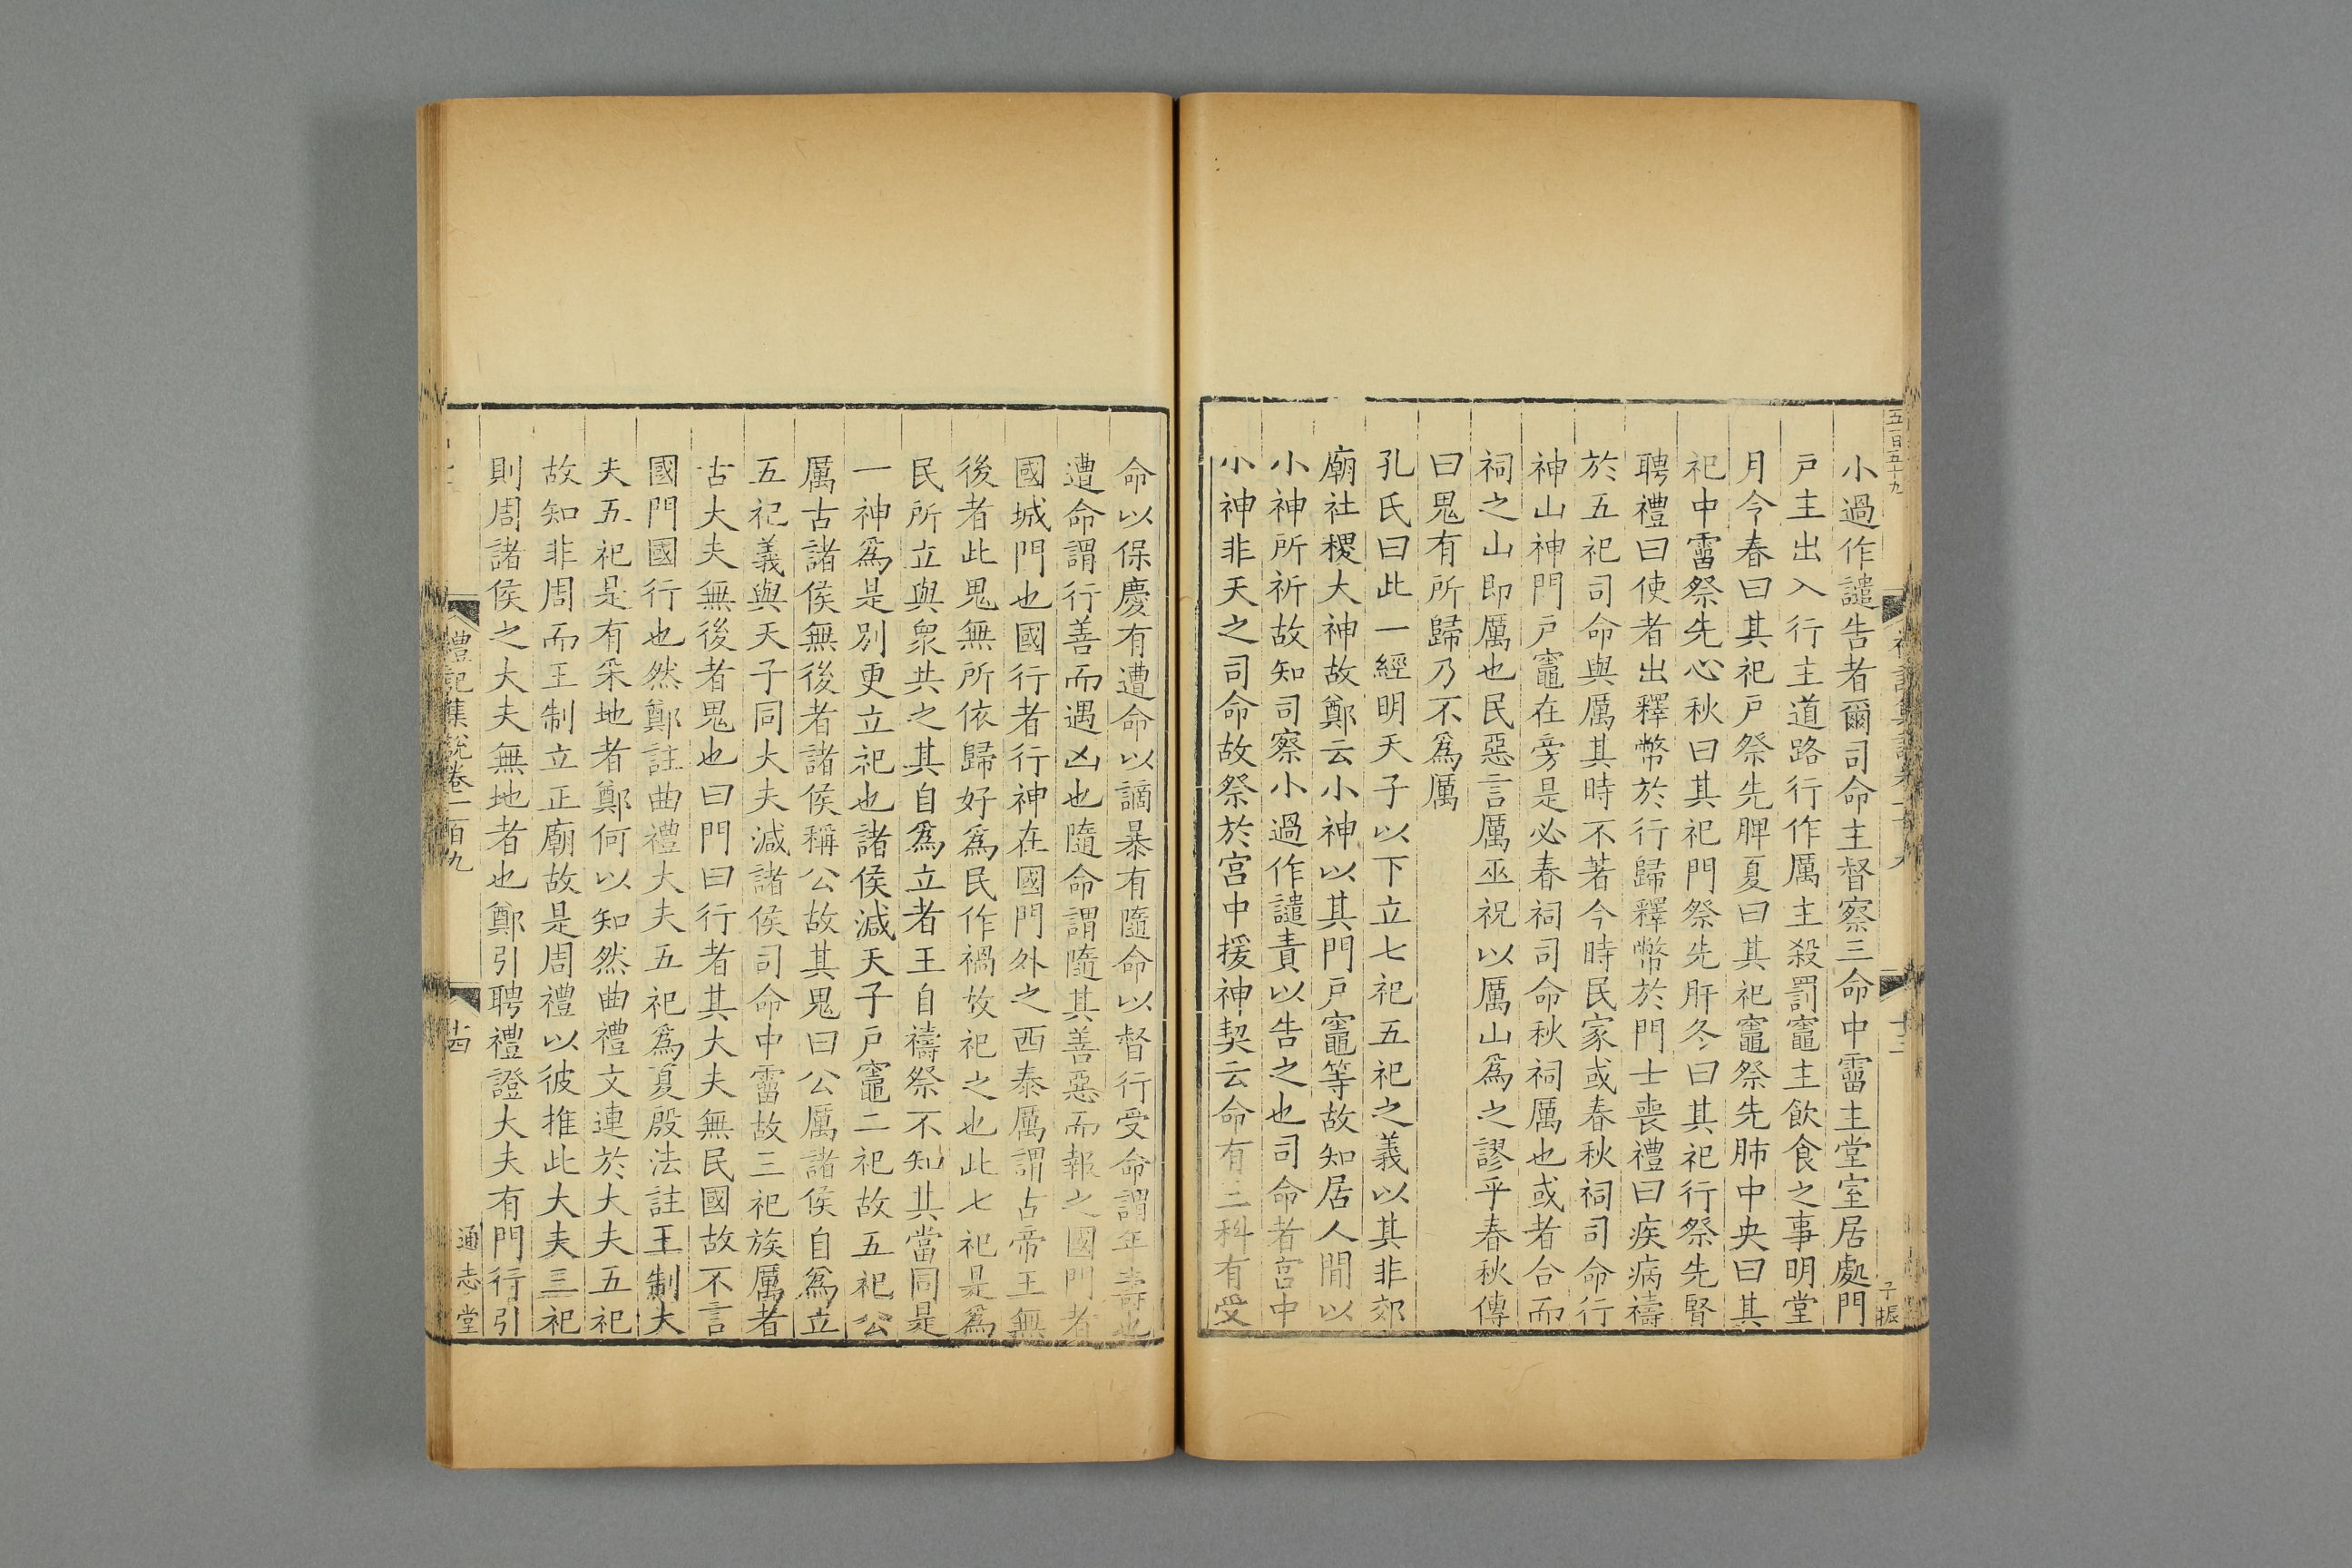 五百五十九
小過作譴告者爾司命主督察三命中霤主堂室居處門
戸主出入行主道路行作厲主殺罰竈主飲食之事明堂
月令春曰其祀戸祭先脾夏曰其祀竈祭先肺中央曰其
祀中霤祭先心秋曰其祀門祭先肝冬曰其祀行祭先腎
聘禮曰使者出釋幣於行歸釋幣於門士喪禮曰疾病禱
於五祀司命與厲其時不著今時民家或春秋祠司命行
神山神門戸竈在旁是必春祠司命秋祠厲也或者合而
祠之山即厲也民惡言厲巫祝以厲山爲之謬乎春秋傳
曰鬼有所歸乃不爲厲
孔氏曰此一經明天子以下立七祀五祀之義以其非郊
廟社稷大神故鄭云小神以其門戸竈等故知居人閒以
小神所祈故知司察小過作譴責以告之也司命者宮中
小神非天之司命故祭於宮中援神契云命有三科有受
子振
命以保慶有遭命以謫暴有隨命以督行受命謂年壽也
遭命謂行善而遇凶也隨命謂隨其善惡而報之國門者
國城門也國行者行神在國門外之西泰厲謂古帝王無
後者此鬼無所依歸好爲民作禍故祀之也此七祀是爲
民所立與衆共之其自爲立者王自禱祭不知其當同是
一神爲是別更立祀也諸侯減天子戸竈二祀故五祀公
厲古諸侯無後者諸侯稱公故其鬼曰公厲諸侯自爲立
五祀義與天子同大夫減諸侯司命中霤故三祀族厲者
古大夫無後者鬼也曰門曰行者其大夫無民國故不言
國門國行也然鄭註曲禮大夫五祀爲夏殷法註王制大
夫五祀是有采地者鄭何以知然曲禮文連於大夫五祀
故知非周而王制立正廟故是周禮以彼推此大夫三祀
則周諸侯之大夫無地者也鄭引聘禮證大夫有門行引
禮記集說卷一百九
十四
通志堂